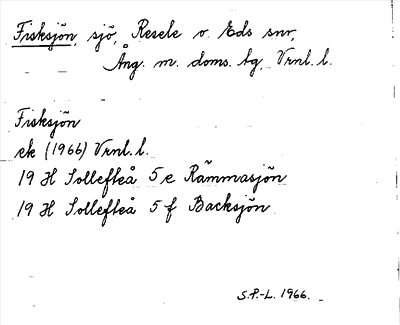 Fisksjön, sjö, Resele o. Eds snr,
Ång. m. doms. bg, Vrnl. l.
Fisksjön
ek (1966) Vrnl. l.
19 H Sollefteå 5 e Rämmasjön
19 H Sollefteå 5 f Backsjön
S.P.-L. 1966.